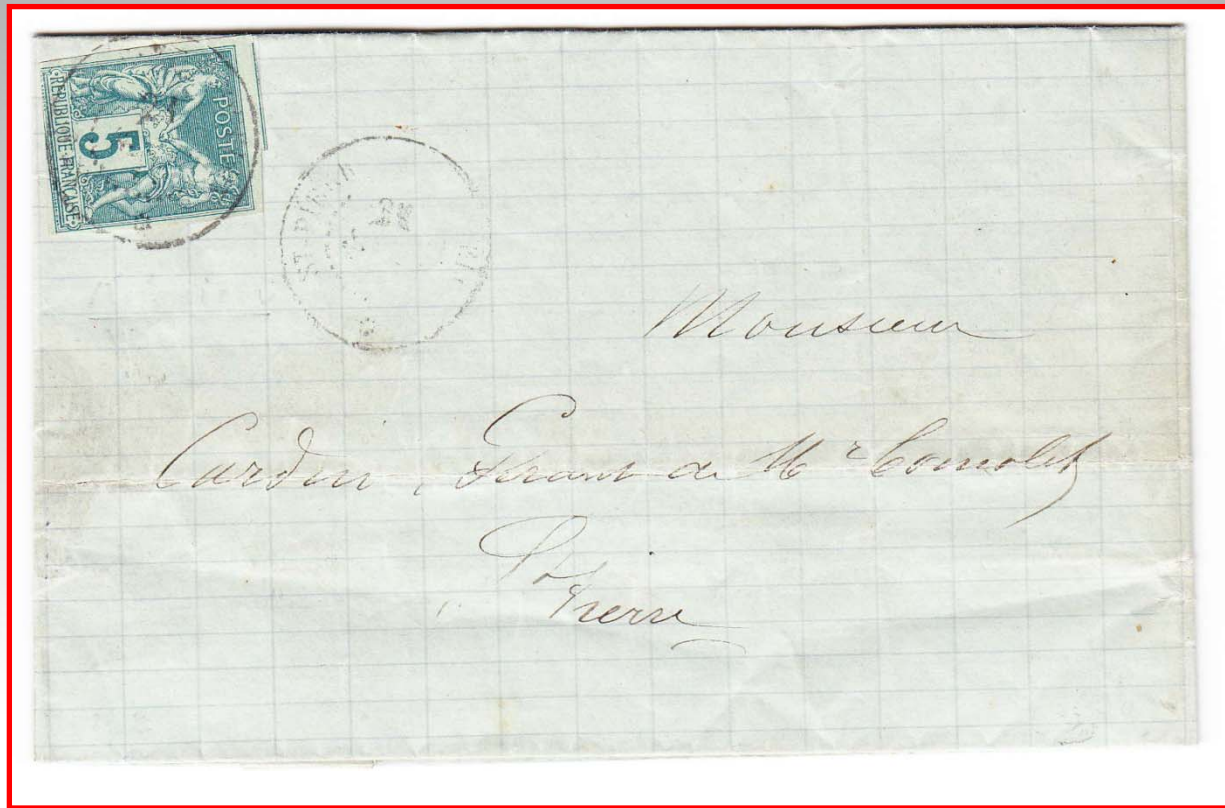 POSTES
5
REPUBLIQUE FRANÇAISE
ST PIERRE
Monsieur
Cardin, Gérant de Mr
St Pierre